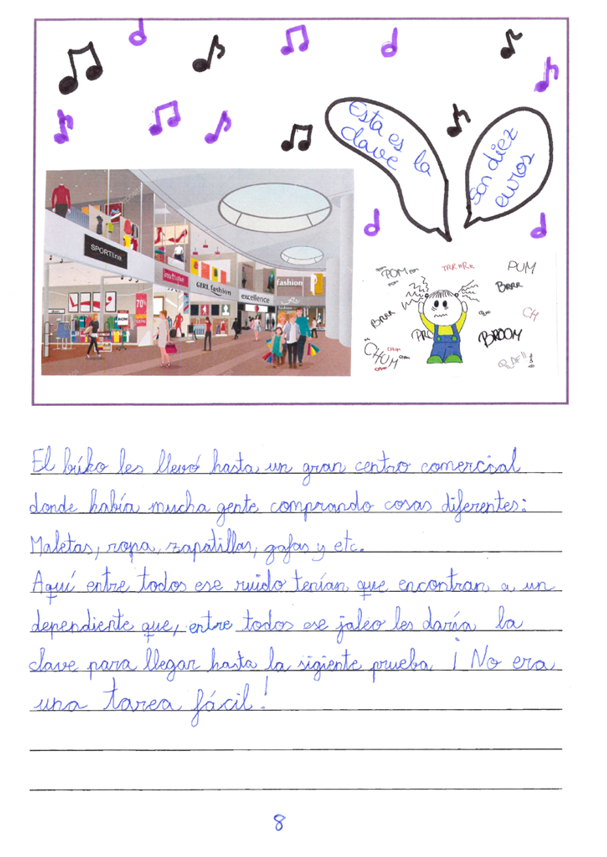 Esta es la
clave
Son diez
euros
SPORTlink
GIRL fashion
excellence
fashion
70%
POM
TRRRRR
PUM
BRRR
BRRR
CH
BROOM
CHUM
El búho les llevó hasta un gran centro comercial
donde había mucha gente comprando cosas diferentes:
Maletas, ropa, zapatillas, gafas y etc.
Aquí entre todos ese ruido tenían que encontran a un
dependiente que, entre todos ese jaleo les daría la
clave para llegar hasta la sigiente prueba ¡No era
una tarea fácil!
8